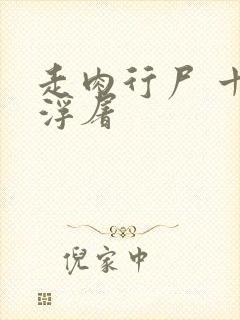 走肉行尸 十
浮屠
倪家中